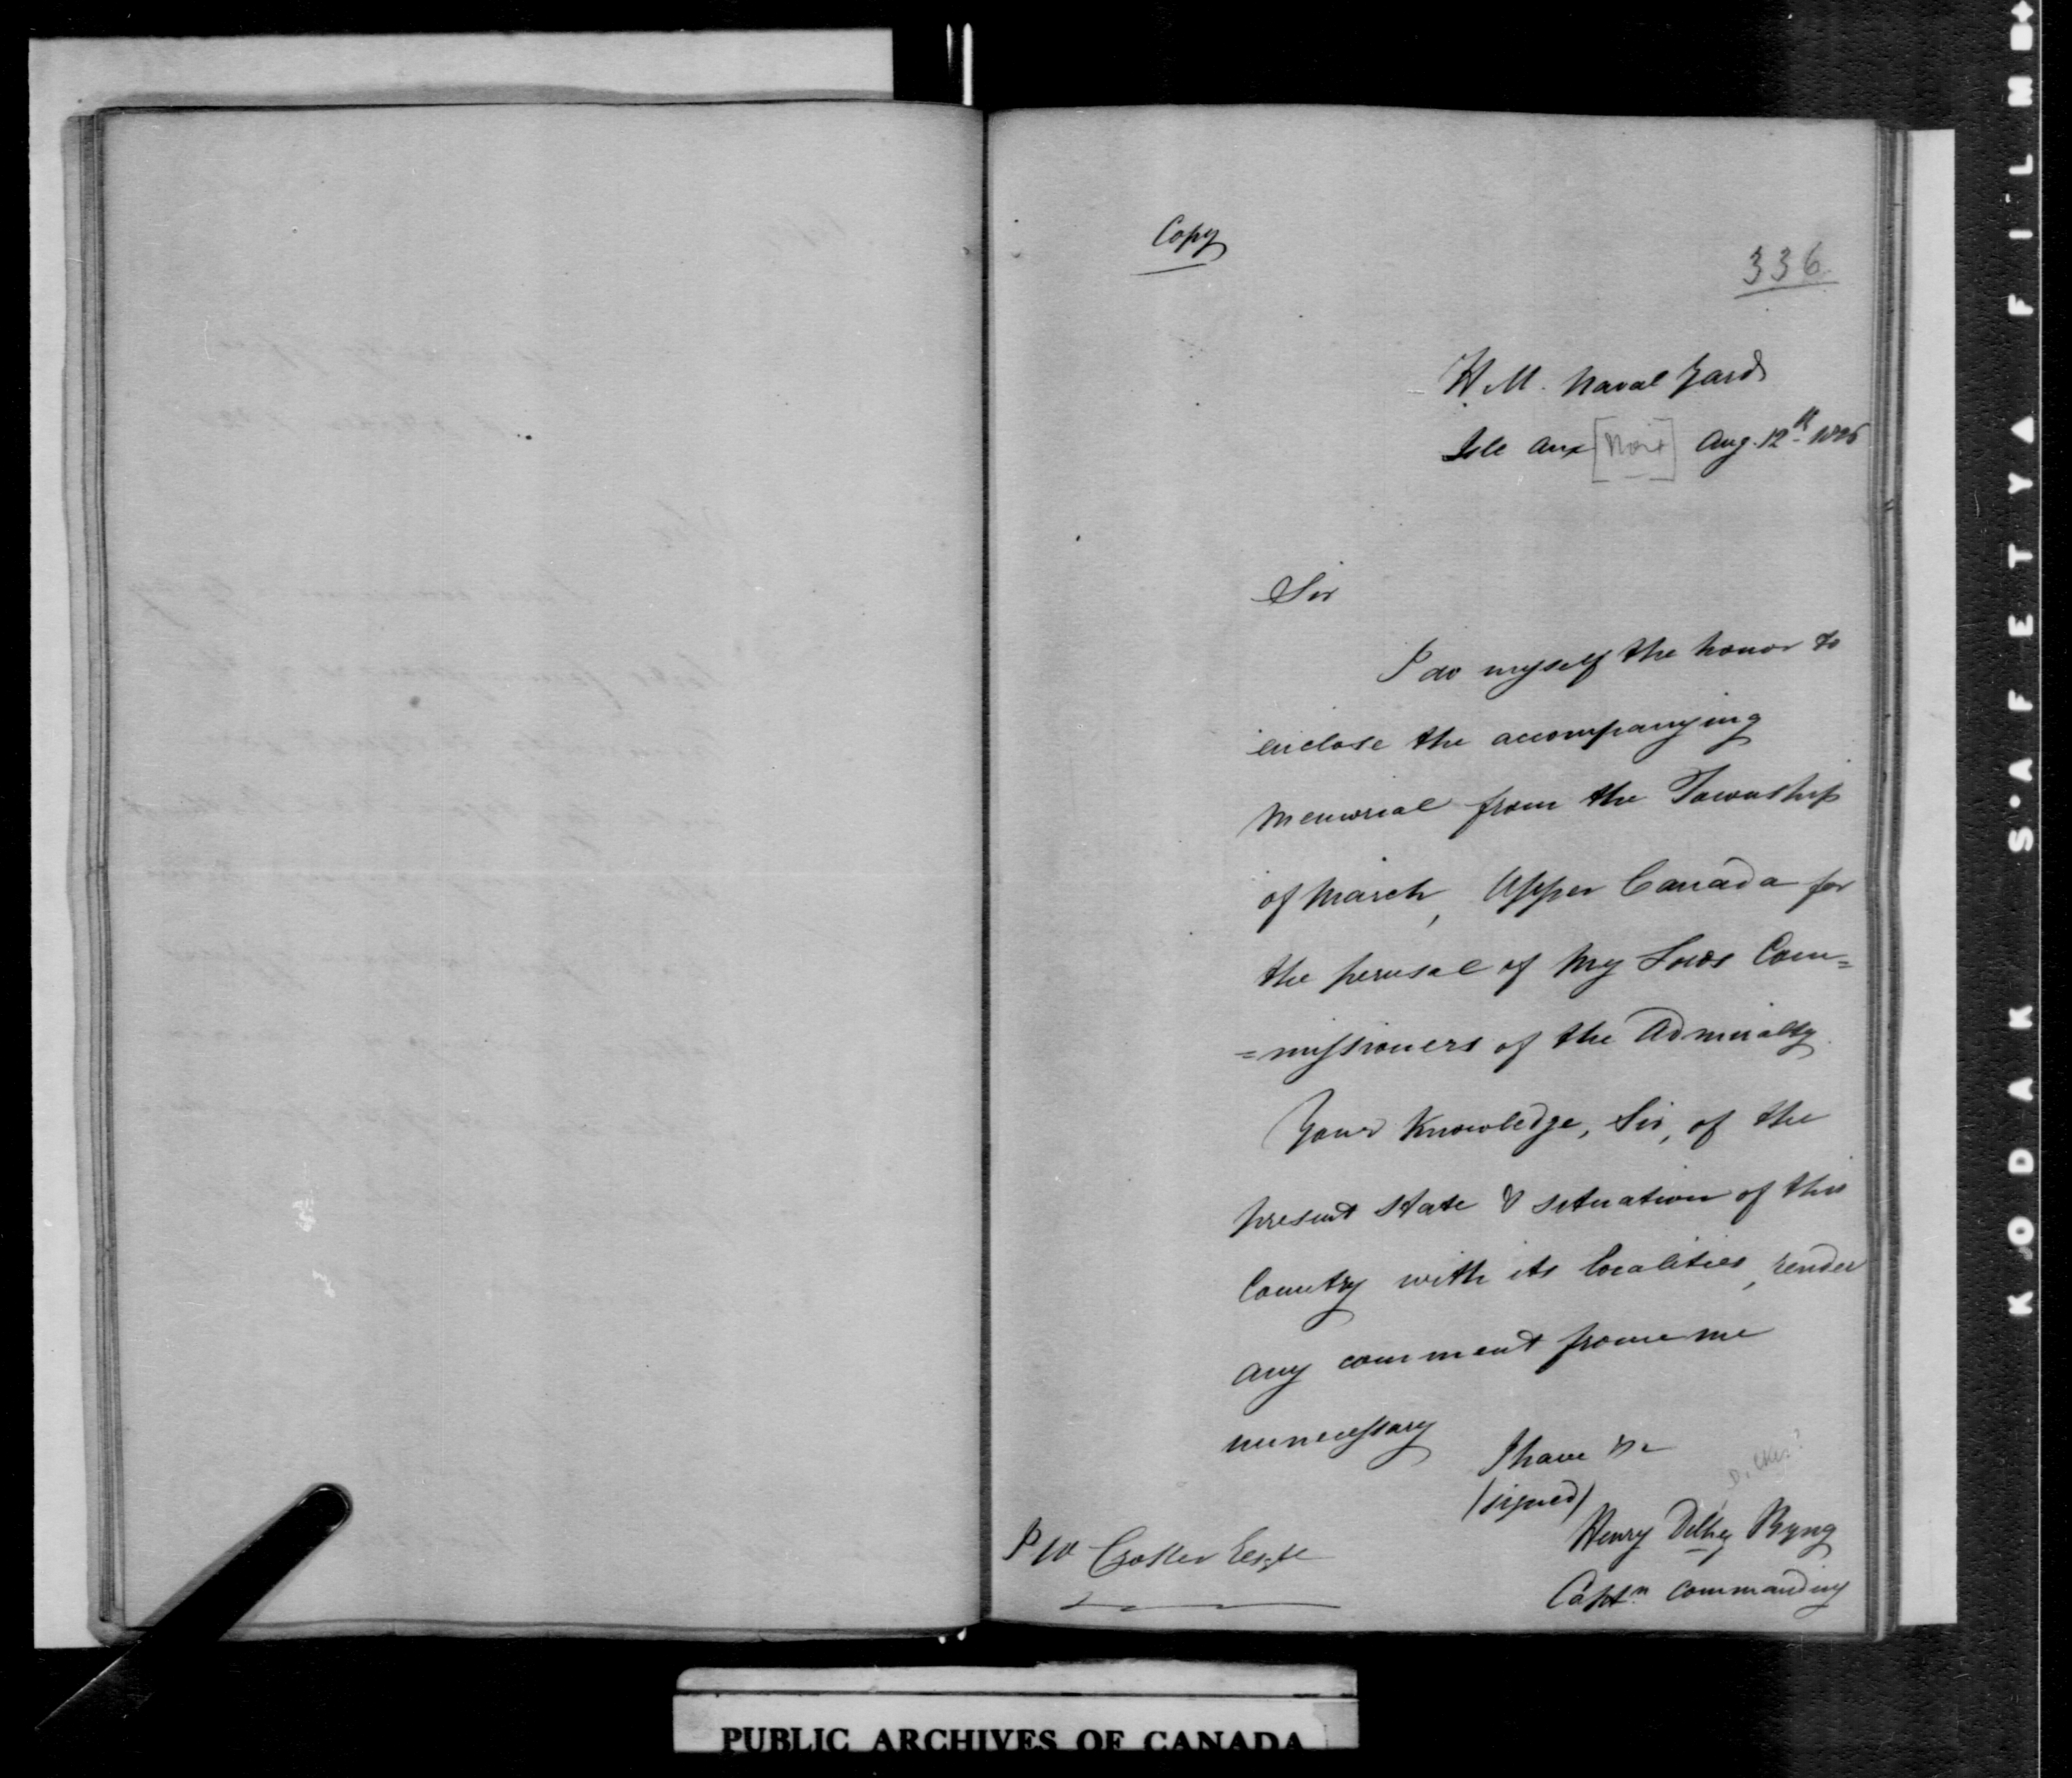 Copy
336
H. M. Naval Yard
Isle aux [Noix] Aug. 12th 1825
Sir
I do myself the honor to
enclose the accompanying
Memorial from the Township
of March, Upper Canada for
the perusal of My Lords Com=
=missioners of the Admiralty.
Your Knowledge, Sir, of the
present state & situation of this
Country with its localities, render
any comment from me
unnecessary
I have &c
(signed)
Henry Dilkes Byng
Captn. Commanding
Dilkes?
J W Croker Esqre
PUBLIC ARCHIVES OF CANADA
KODAK S'AFETY FILM